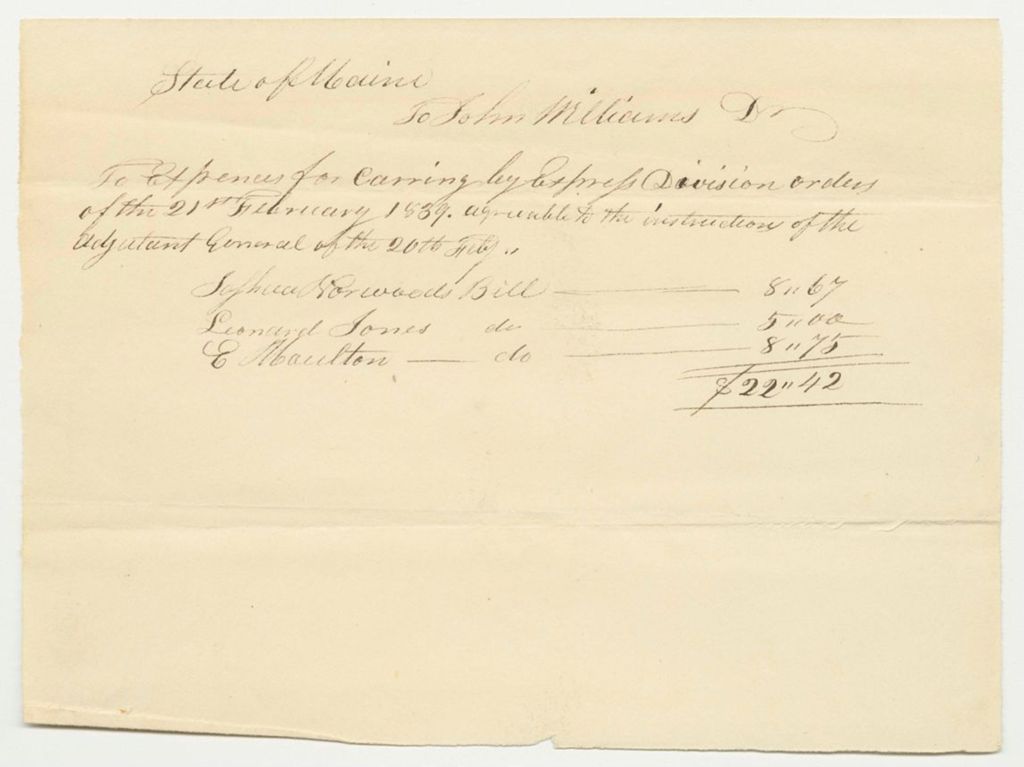 State of Maine
To John Williams Dr
To Expences for Carring by Express Division orders
of the 21st February 1839. agreeable to the instruction of the
Adjutant General of the 20th Feby.,
Joshua Norwoods Bill 8"67
Leonard Jones do 5"00
E Moulton do 8"75
$22"42